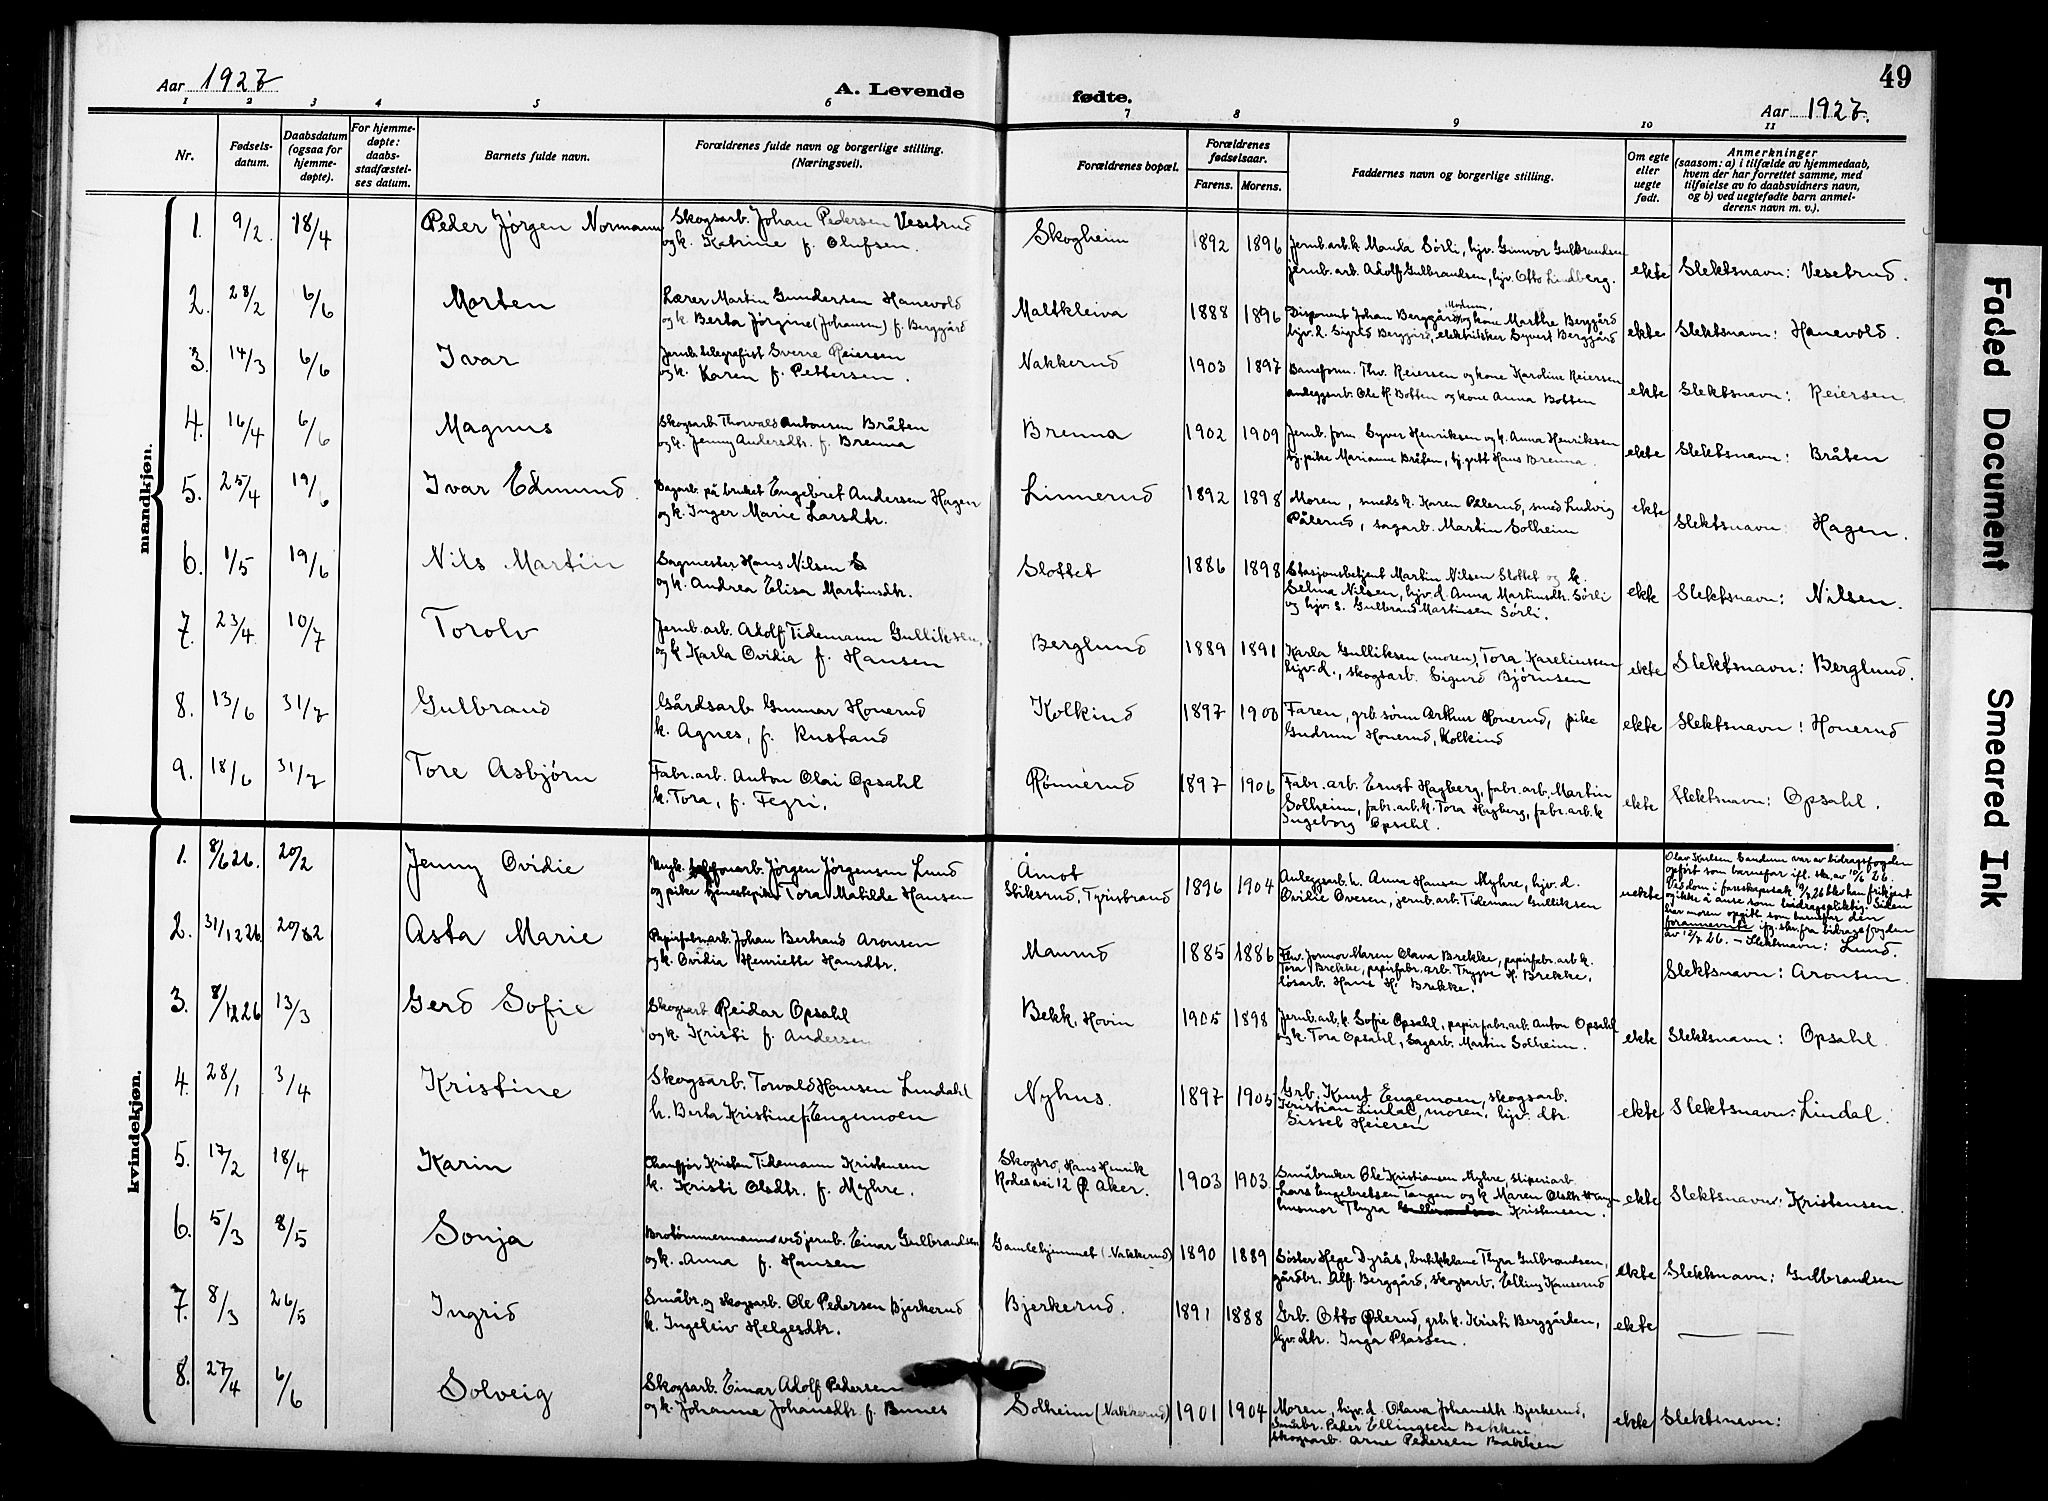 49
Aar 1927
A. Levende fødte.
Aar 1927.
1 2 3 4 5 6 7 8 9 10 11
Nr.
Fødsels-
datum.
Daabsdatum
(ogsaa for
hjemme-
døpte).
For hjemme-
døpte:
daabs-
stadfæstel-
ses datum.
Barnets fulde navn.
Forældrenes fulde navn og borgerlige stilling.
(Næringsvei).
Forældrenes bopæl.
Forældrenes
fødselsaar.
Farens. Morens.
Faddernes navn og borgerlige stilling.
Om egte
eller
uegte
født.
Anmerkninger
(saasom: a) i tilfælde av hjemmedaab,
hvem der har forrettet samme, med
tilføielse av to daabsvidners navn,
og b) ved uegtefødte barn anmel-
derens navn m. v.).
mandkjøn.
1. 9/2. 18/4 Peder Jörgen Normann
Skogsarb. Johan Pedersen Vesetrud
og k. Katrine f. Olufsen.
Skogheim 1892 1896
Jernb.arb.k. Manda Sörli, hjv. Gunvor Gulbrandsen
jernb. arb. Adolf Gulbrandsen, hjv. Otto Lindberg.
ekte Slektsnavn: Vesetrud.
2. 28/2 6/6 Morten
Lærer Martin Gundersen Hanevold
og k. Berta Jörgine (Johansen) f. Berggård
Maltkleiva 1888 1896
Disponent Johan Berggård, Modum og kone Marthe Berggård
hjv. d. Sigrid Berggård, elektrisker Syvert Berggård
ekte Slektsnavn: Hanevold.
3. 14/3 6/6 Ivar
Jernb. telegrafist Sverre Reiersen
og k. Karen f. Pettersen.
Nakkerud 1903 1897
Baneform. Thv. Reiersen og kone Karoline Reiersen
anleggsarb. Ole H. Botten og kone Anna Botten
ekte Slektsnavn: Reiersen
4. 16/4 6/6 Magnus
Skogsarb Thorvald Antonsen Bråten
og k. Jenny Andersdtr. f. Brenna
Brenna 1902 1909
Jernb. form Syver Henriksen og k. Anna Henriksen
tj. pike Marianne Bråten, tj. gutt Hans Brenna.
ekte Slektsnavn: Bråten
5. 25/4 19/6 Ivar Edmund.
Sagarb. på bruket Engebret Andersen Hagen
og k. Inger Marie Larsdtr.
Linnerud 1892 1898
Moren, smeds k. Karen Pålerud, smed Ludvig
Pålerud, sagarb. Martin Solheim
ekte Slektsnavn: Hagen.
6. 1/5 19/6 Nils Martin
Sagmester Hans Nilsen
og k. Andrea Elisa Martinsdtr.
Slottet 1886 1898
Stasjonsbetjent Martin Nilsen Slottet og k.
Selma Nilsen, hjv. d. Anna Martinsdtr. Sörli
og hjv. s. Gulbrand Martinsen Sörli.
ekte Slektsnavn: Nilsen.
7. 23/4. 10/7 Torolv
Jernb. arb. Adolf Tidemann Gulliksen,
og k Karla Ovidia f. Hansen
Berglund 1889 1891
Karla Gulliksen (moren), Tora Kareliussen
hjv. d., skogsarb. Sigurd Björnsen
ekte Slektsnavn: Berglund.
8. 13/6 31/7 Gulbrand
Gårdsarb. Gunnar Honerud
k. Agnes, f. Rustand
Kolkind 1897 1900
Faren, grb. sönn Arthur Honerud, pike
Gudrun Honerud, Kolkind
ekte Slektsnavn: Honerud
9. 18/6 31/7 Tore Asbjörn
Fabr. arb. Anton Olai Opsahl
k. Tora, f. Fegri,
Rönnerud 1897 1906
Fabr. arb. Ernst Hagberg, fabr. arb. Martin
Solheim, fabr.arb.k. Tora Hagberg, fabr. arb. k
Ingeborg Opsahl.
ekte Slektsnavn: Opsahl.
kvindekjøn.
1. 8/6 26. 20/2 Jenny Ovidie
Jörgen Jörgensen Lund
og pike tjenestepike Tora Matilde Hansen
Åmot
Stiksrud, Tyristrand 1896 1904
Anleggsarb. k. Anna Hansen Myhre, hjv. d.
Ovidie Ovesen, jernb. arb. Tideman Gulliksen
uekte
Olav Karlsen Sandum var av bidragsfogden
opfört som barnefar ifl. skr. av 10/6 26.
Ved dom i farskapssak 9/7 26 blev han frikjent
og ikke å anse som bidragspliktig. Siden
har moren opgitt som barnefar den
forannevnte ifg. skr. fra bidragsfogden
av 12/7 26. – Slektsnavn: Lund.
2. 31/12 26. 20/2 Asta Marie
Papirfabr.arb. Johan Bertrand Aronsen
og k. Ovidia Henriette Hansdtr.
Maurud 1885 1886
Maren Olava Brekke, papirfabr. arb k.
Tora Brekke, papirfabr. arb. Trygve H. Brekke,
lösarb. Hans H. Brekke.
Slektsnavn: Aronsen.
3. 8/12 26 13/3 Gerd Sofie
Skogsarb Reidar Opsahl
og k. Kristi f. Andersen
Bekk, Hovin 1905 1898
Jernb. arb. k. Sofie Opsahl, papirfabr. arb. Anton Opsahl
og k. Tora Opsahl, Sagarb. Martin Solheim.
ekte Slektsnavn: Opsahl.
4. 28/1 3/4 Kristine
Skogsarb. Torvald Hansen Lindahl
k. Berta Kristine f. Engemoen
Nyhus. 1897 1905
Grb. Knut Engemoen, skogsarb.
Kristian Lindal, moren, hjv. dtr.
Sissel Heieren
ekte Slektsnavn: Lindal.
5. 17/2 18/4 Karin
Chauffør Kristen Tidemann Kristensen
k. Kristi Olsdtr. f. Myhre.
Skogsro, Hans Henrik
Rodes vei 12 Ø. Aker. 1903 1903
Småbruker Ole Kristiansen Myhre, sliperiarb.
Lars Engebretsen Tangen og k Maren Olsdtr Tangen
husmor Thyra Kristensen.
ekte Slektsnavn: Kristensen.
6. 5/3 8/5 Sonja
Brotömmermann ved jernb. Einar Gulbrandsen
og k. Anna f. Hansen
Gamlehjemmet (Nakkerud) 1890 1889
Söster Hege Dyrås, butikkdame Thyra Gulbrandsen,
gårdbr. Alf Berggård, skogsarb. Elling Kanserud
ekte Slektsnavn: Gulbrandsen
7. 8/3 26/5 Ingrid
Småbr. og skogsarb. Ole Pedersen Bjerkerud
k. Ingeleiv Helgesdtr.
Bjerkerud. 1891 1888
Grb. Otto Ölerud, grb. k. Kristi Berggården,
hjv. dtr. Inga Plassen.
ekte — —
8. 27/4 6/6 Solveig
Skogsarb. Einar Adolf Pedersen
og k. Johanne Johansdtr f. Bunes
Solheim (Nakkerud) 1901 1904
Moren, hjv. d. Olava Johansdtr. Bjerkerud,
Småbr. Peder Ellingsen Bakken
skogsarb. Arne Pedersen Bakken
ekte Slektsnavn:
Faded Document
Smeared Ink